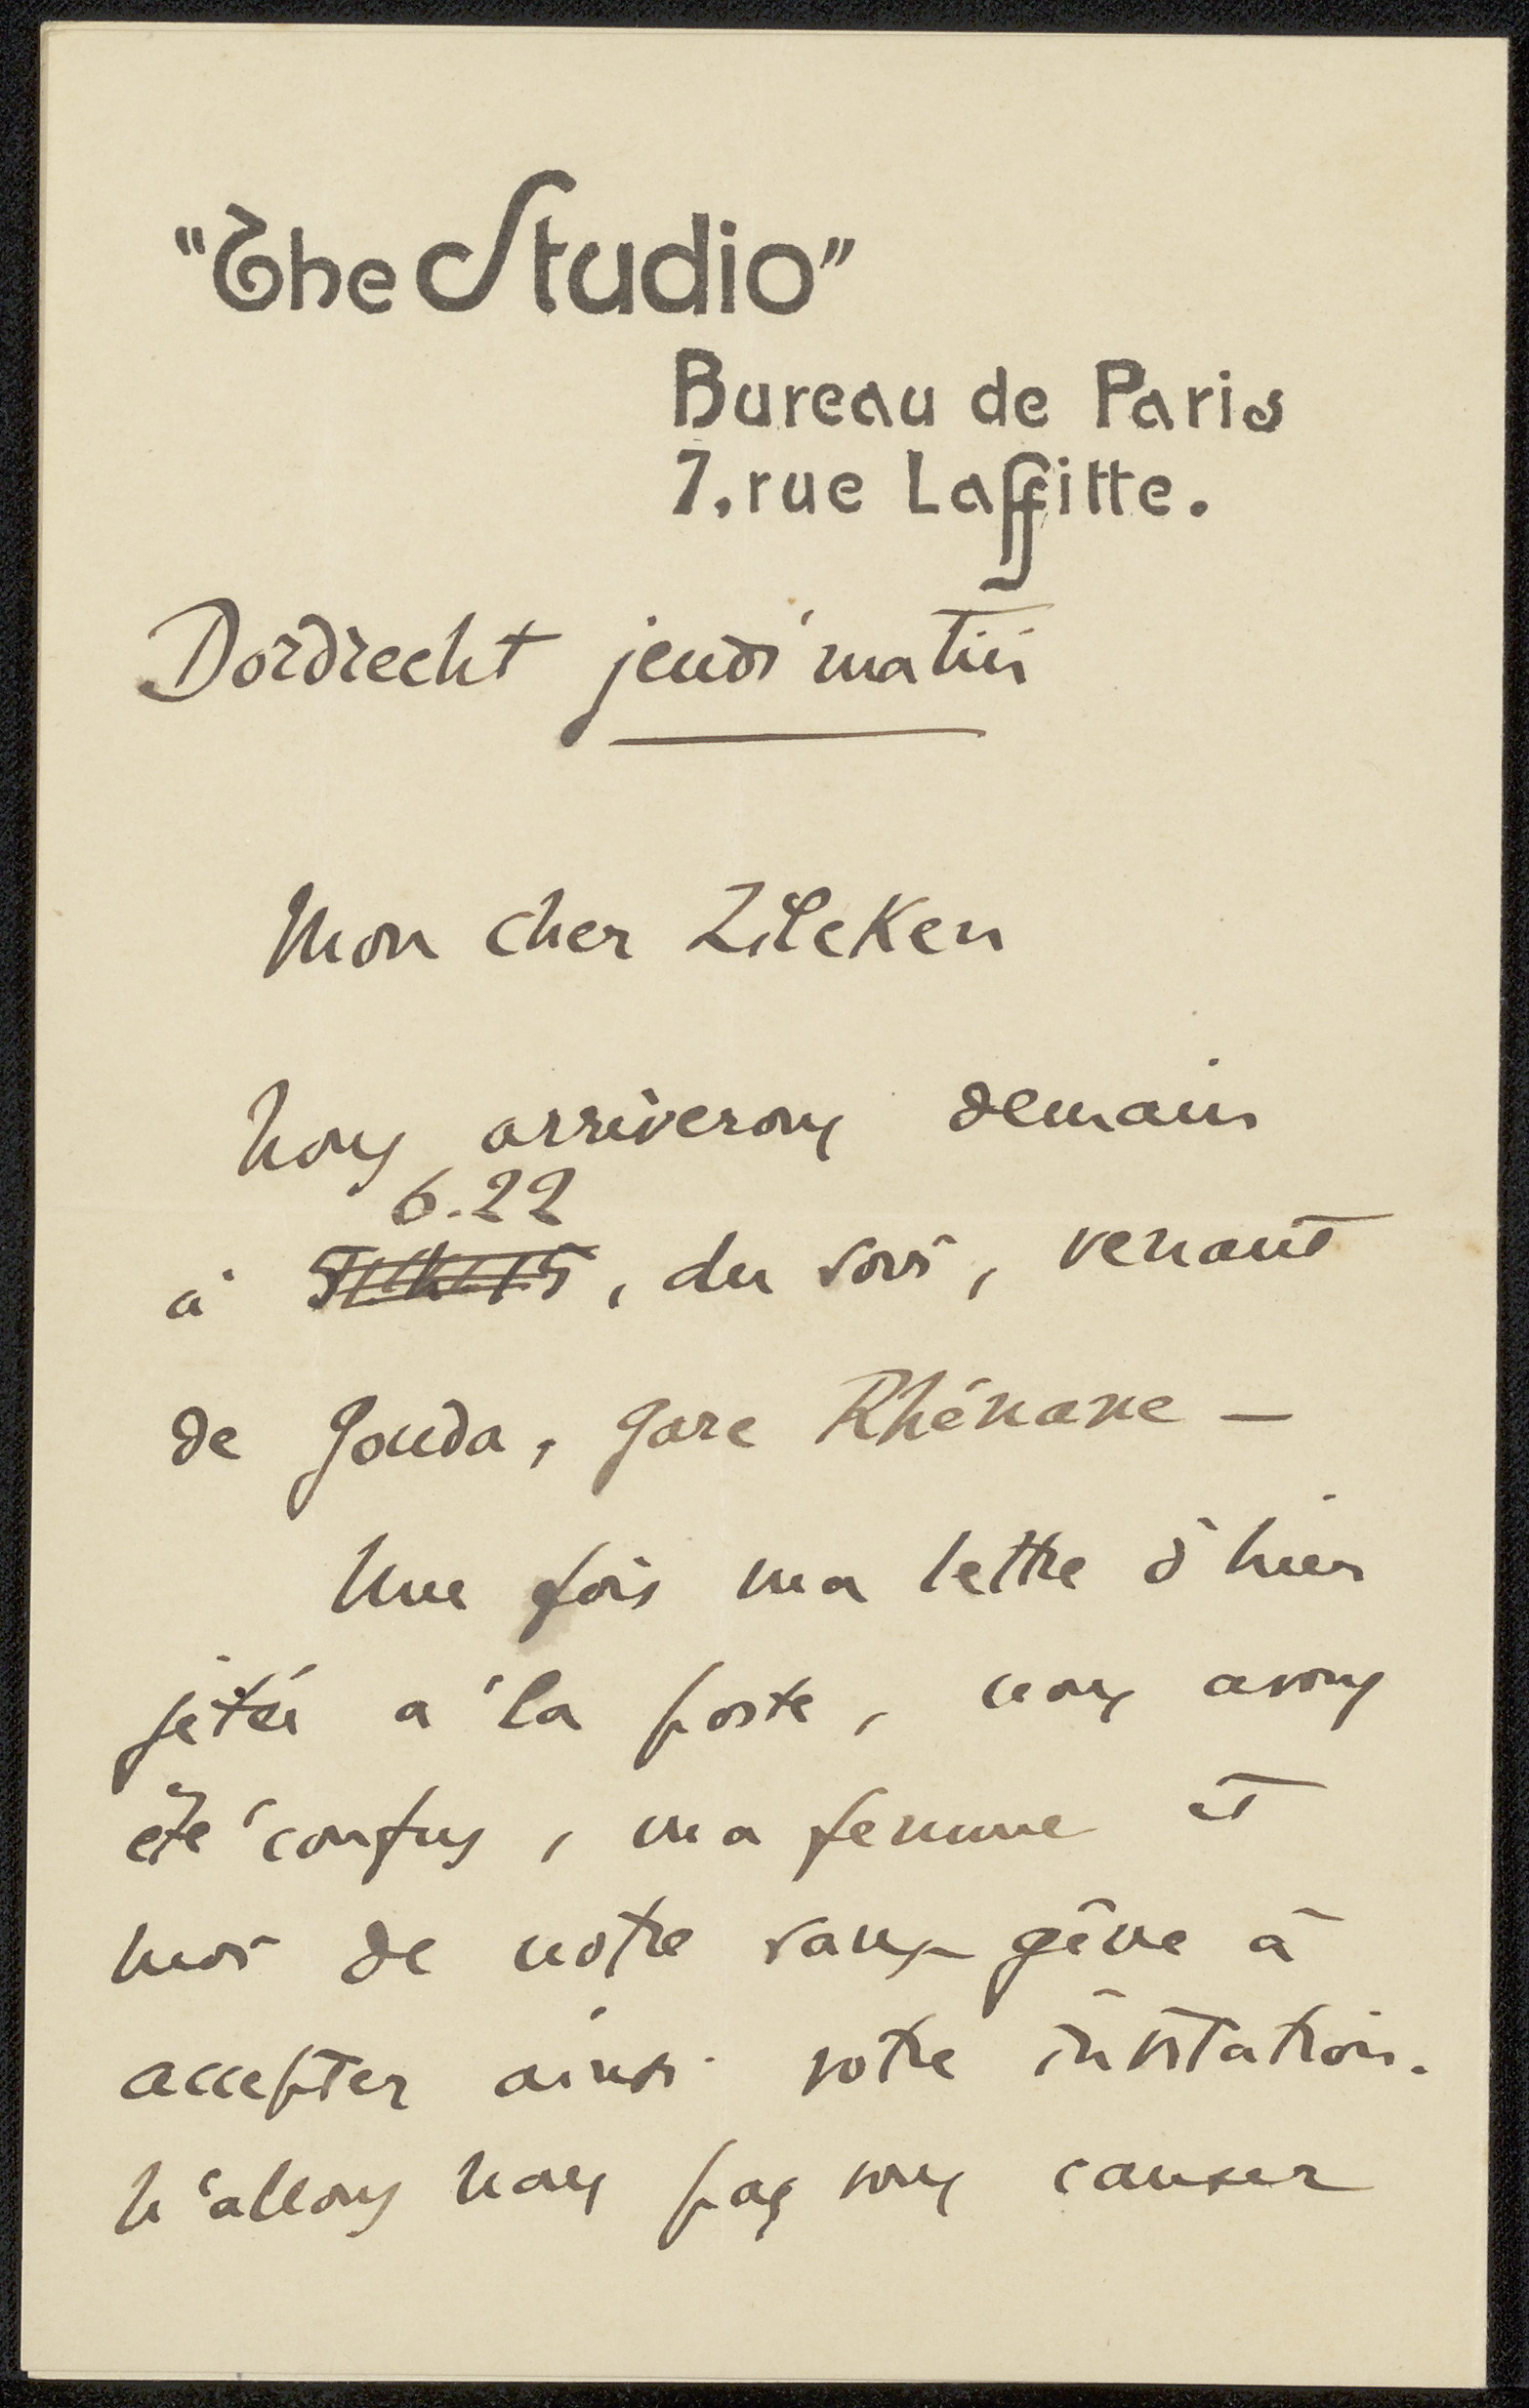 "The Studio"
Bureau de Paris
7, rue Laffitte.
Dordrecht jeudi matin
Mon cher Zilcken
Nous arriverons demain
6.22
à , du soir, venant
de Gouda, gare Rhénane —
Une fois ma lettre d'hier
jetée à la poste, nous avons
été confus, ma femme et
moi de notre sans-gêne à
accepter ainsi votre invitation.
N'allons nous pas vous causer